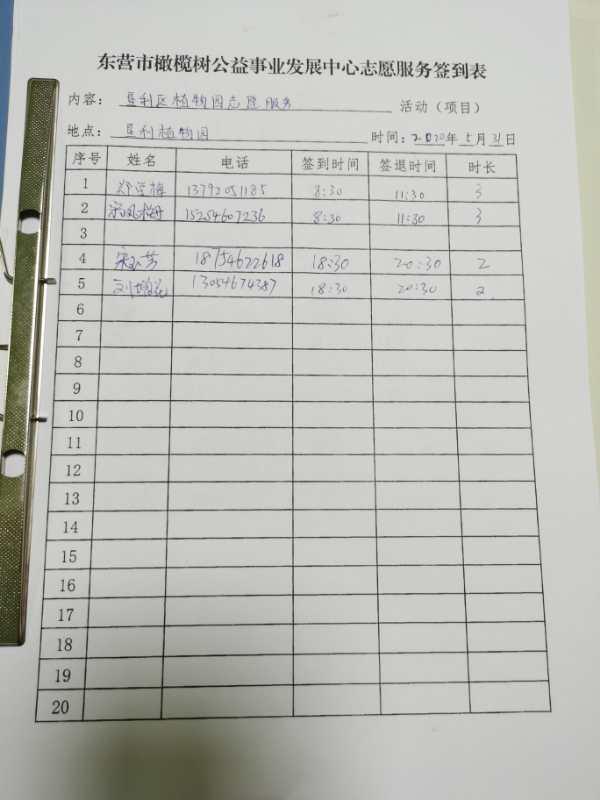 东营市橄榄树公益事业发展中心志愿服务签到表
内容： 垦利区植物园志愿服务 活动（项目）
地点： 垦利植物园 时间：2020年5月31日
序号 姓名 电话 签到时间 签退时间 时长
1 郑学梅 13792051185 8:30 11:30 3
2 宋凤梅 15254607236 8:30 11:30 3
3
4 宋玉芳 18754622618 18:30 20:30 2
5 刘增花 13054674387 18:30 20:30 2
6
7
8
9
10
11
12
13
14
15
16
17
18
19
20